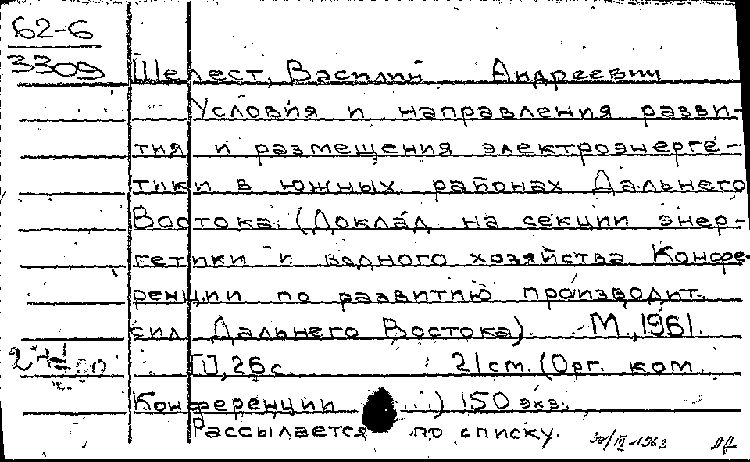 62-6
3309
Шелест, Василий Андреевич
Условия и направления разви-
тия и размещения электроэнерге-
тики в южных районах Дальнего
Востока. (Доклад на секции энер-
гетики и водного хозяйства Конфе-
ренции по развитию производит.
сил Дальнего Востока). М., 1961.
[1], 26 с. 21 см. (Орг. ком.
Конференции ...) 150 экз.
Рассылается по списку.